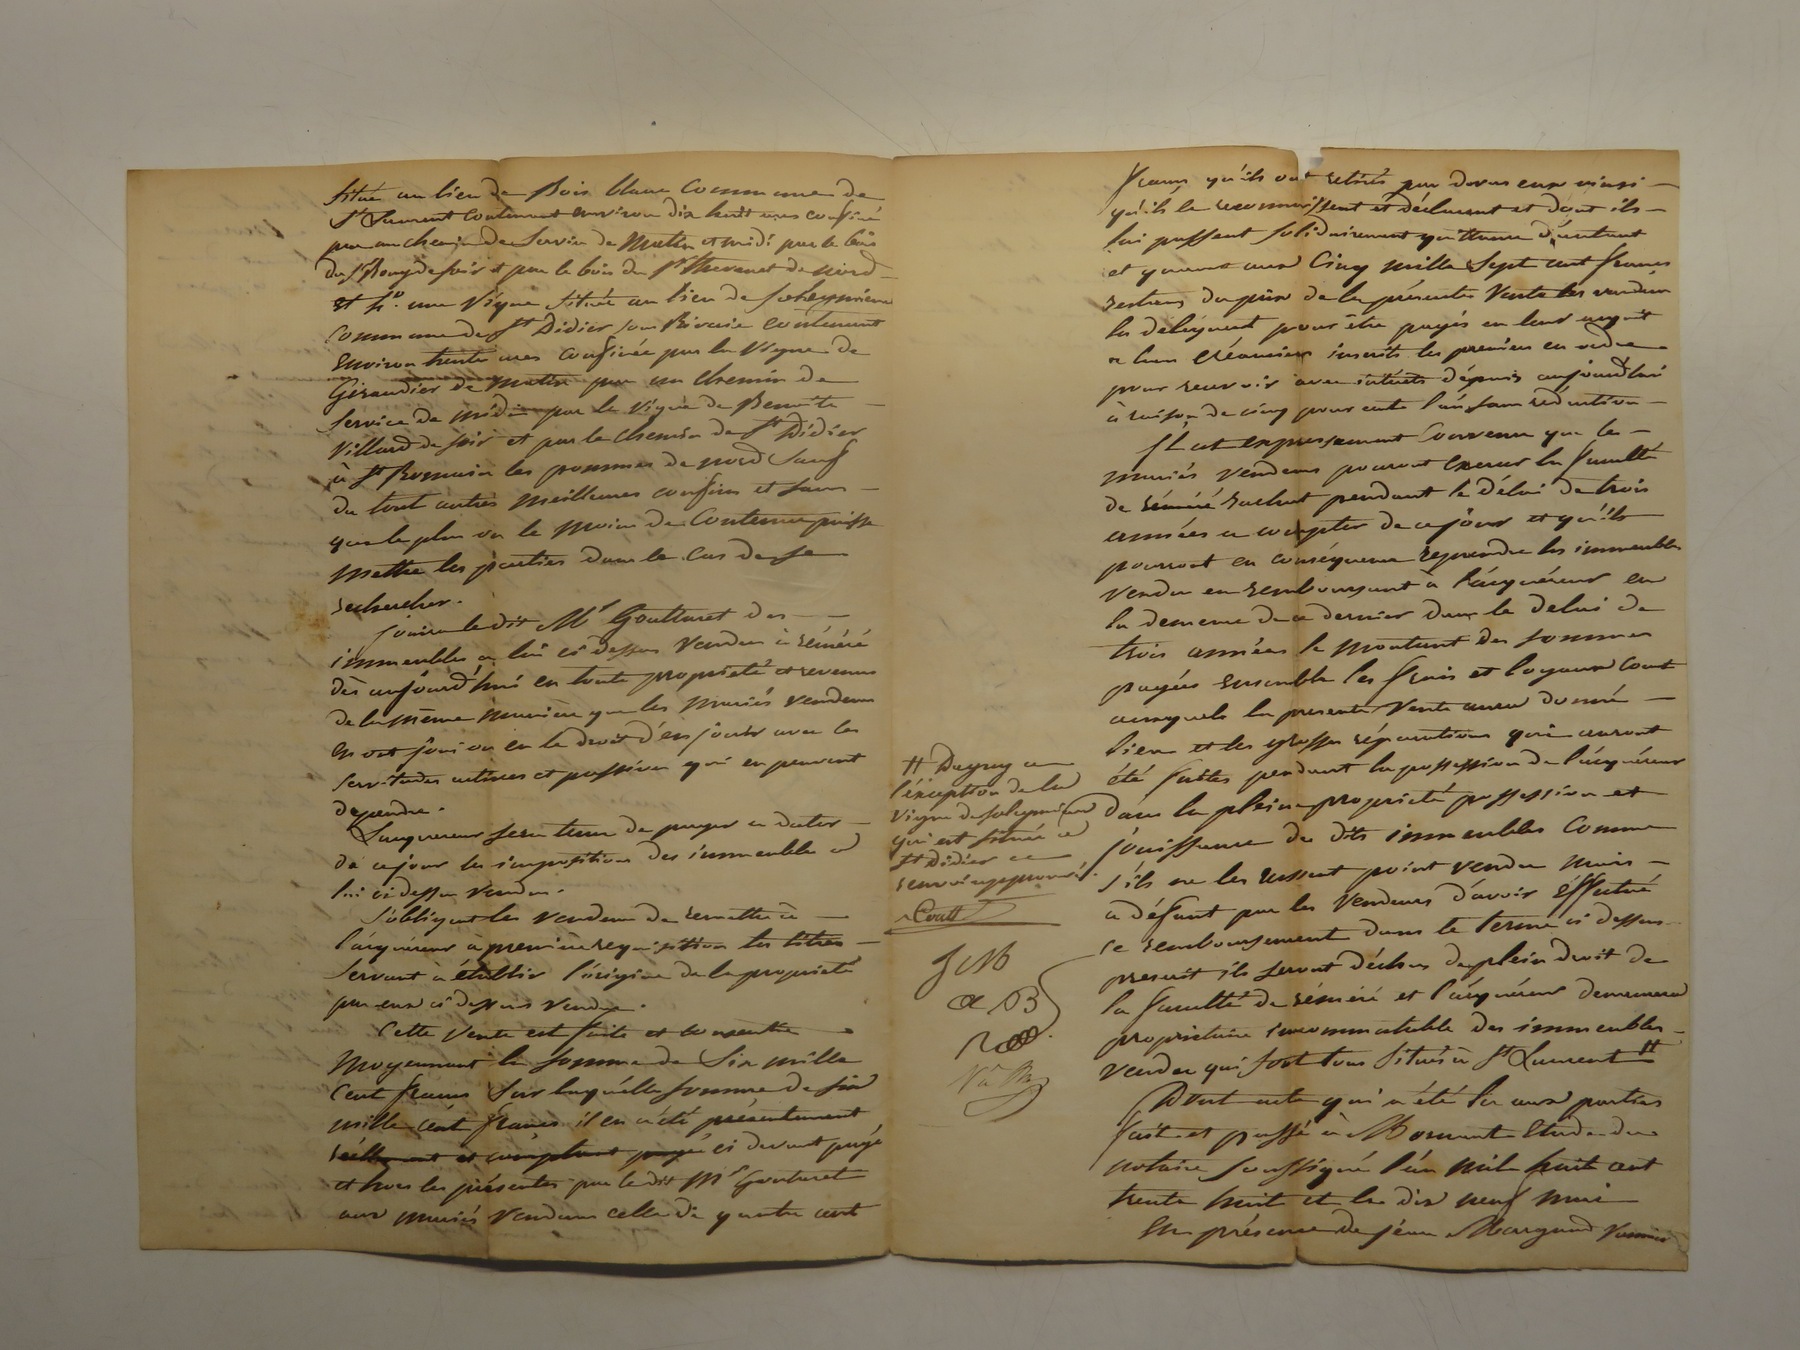 situé au lieu de Bois blanc Commune de
St Laurent Contenant environ dix huit ares confiné
par un chemin de Service de Matin et midi par le bois
du Sr Bouy de soir et par le bois du Sr Thevenet de nord
et 5o. une Vigne située au lieu de Soleymieux
Commune de St Didier sous Riverie contenant
environ trente ares confinée par la Vigne de
Giraudier de matin par un chemin de
Service de midi par la Vigne de Benoite
Villard de soir et par le chemin de St Didier
à St Romain les pommes de nord Sauf
du tout autres meilleures confins et sans
que le plus ou le moins de Contenue puisse
mettre les parties dans le cas de se
rechercher.
Jouira le dit Mr Goutturet des
immeubles à lui ci dessus Vendus à réméré
dès aujourd'hui en toute propriété et revenus
de la même manière que les mariés vendeurs
en ont joui ou eu le droit d'en jouir avec les
servitudes actives et passives qui en peuvent
dépendre.
L'acquereur sera tenu de payer à dater
de ce jour les impositions des immeubles à
lui ci dessus Vendus.
S'obligent les Vendeurs de remettre à
l'acquéreur à première requisition les titres
servant à établir l'origine de la propriété
par eux ci dessus Vendue.
Cette Vente est faite et consentie
moyennant la somme de Six mille
Cent francs Sur laquelle somme de six
mille cent francs il en a été présentement
réellement et comptant payé ci devant payé
et hors les présentes par le dit Mr Goutturet
aux mariés Vendeurs celle de quatre cent
francs qu'ils ont retirés par devers eux ainsi
qu'ils le reconnaissent et déclarent et dont ils
lui passent solidairement quittance d'autant
et quant aux Cinq mille Sept cent francs
restans du prix de la présente Vente les vendeurs
les delèguent pour être payés en leur acquit
à leurs Créanciers inscrits les premiers en ordre
pour recevoir avec intérêts depuis aujourd'hui
à raison de cinq pour cent l'an sans reduction
Il est expressement Convenu que les
mariés vendeurs pourront exercer la faculté
de réméré Rachat pendant le délai de trois
années à compter de ce jour et qu'ils
pourront en conséquence reprendre les immeubles
vendus en remboursant à l'acquéreur en
la demeure de ce dernier dans le délai de
trois années le montant des sommes
payées ensemble les frais et loyaux Cout
auxquels la presente Vente aura donné
lieu et les grosses réparations qui auront
été faites pendant la possession de l'acquéreur
dans la pleine propriété possession et
jouissance des dits immeubles Comme
s'ils ne les eussent point vendus mais
à défaut par les Vendeurs d'avoir éffectué
ce remboursement dans le terme ci dessus
prescrit ils seront déchus de plein droit de
la faculté de réméré et l'acquéreur demeurera
propriétaire incommutable des immeubles
vendus qui sont tous situés à St Laurent #
Dont acte qui a été lu aux parties
fait et passé à Mornant Etude du
notaire soussigné l'an mil huit cent
trente huit et le dix neuf mai
En présence de jean Margand
# Dagny à
l'exception de la
Vigne de Soleymieux
qui est située à
St Didier ce
renvoi approuvé.